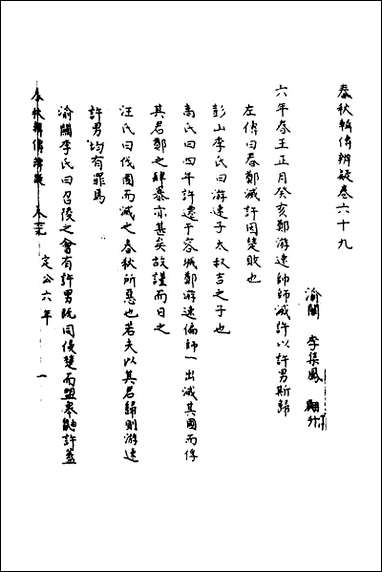 春秋輯傳辨疑卷六十九
渝關 李集鳳 翽升
六年春王正月癸亥鄭游速帥師滅許以許男斯歸
左傳曰春鄭滅許因楚敗也
彭山李氏曰游速子太叔吉之子也
高氏曰四年許遷于容城鄭游速偏師一出滅其國而俘
其君鄭之肆暴亦甚矣故謹而日之
汪氏曰伐國而滅之春秋所惡也若夫以其君歸則游速
許男均有罪焉
渝關李氏曰召陵之會有許男既同侵楚而盟皋鼬許蓋
春秋輯傳辨疑 卷六十九 定公六年 一